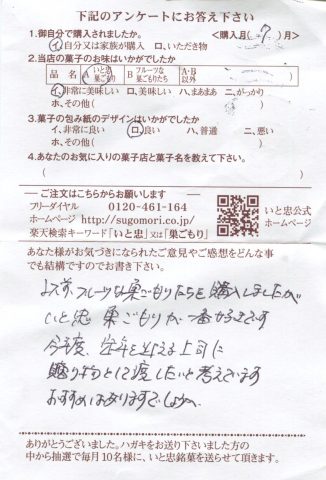 下記のアンケートにお答え下さい
1.御自分で購入されましたか。 <購入月( 7 )月>
イ.自分又は家族が購入 ロ.いただき物
2.当店の菓子のお味はいかがでしたか
品名 A いと忠巣ごもり B フルーツな巣ごもりたち A・B以外
イ.非常に美味しい ロ.美味しい ハ.まあまあ ニ.がっかり
ホ.その他( )
3.菓子の包み紙のデザインはいかがでしたか
イ.非常に良い ロ.良い ハ.普通 ニ.悪い
ホ.その他( )
4.あなたのお気に入りの菓子店と菓子名を教えて下さい。
( )
ご注文はこちらからお願いします
フリーダイヤル 0120-461-164
ホームページ http://sugomori.co.jp/
楽天検索キーワード「いと忠」又は「巣ごもり」
いと忠公式
ホームページ
あなた様がお気づきになられたご意見やご感想をどんな事
でも結構ですのでお書き下さい。
以前、フルーツな巣ごもりたちを購入しましたが
いと忠 巣ごもりが一番好きです
今年度、定年を迎える上司に
贈りものとして渡したいと考えています
おすすめはありますでしょうか。
ありがとうございました。ハガキをお送り下さいました方の
中から抽選で毎月10名様に、いと忠銘菓を送らせて頂きます。